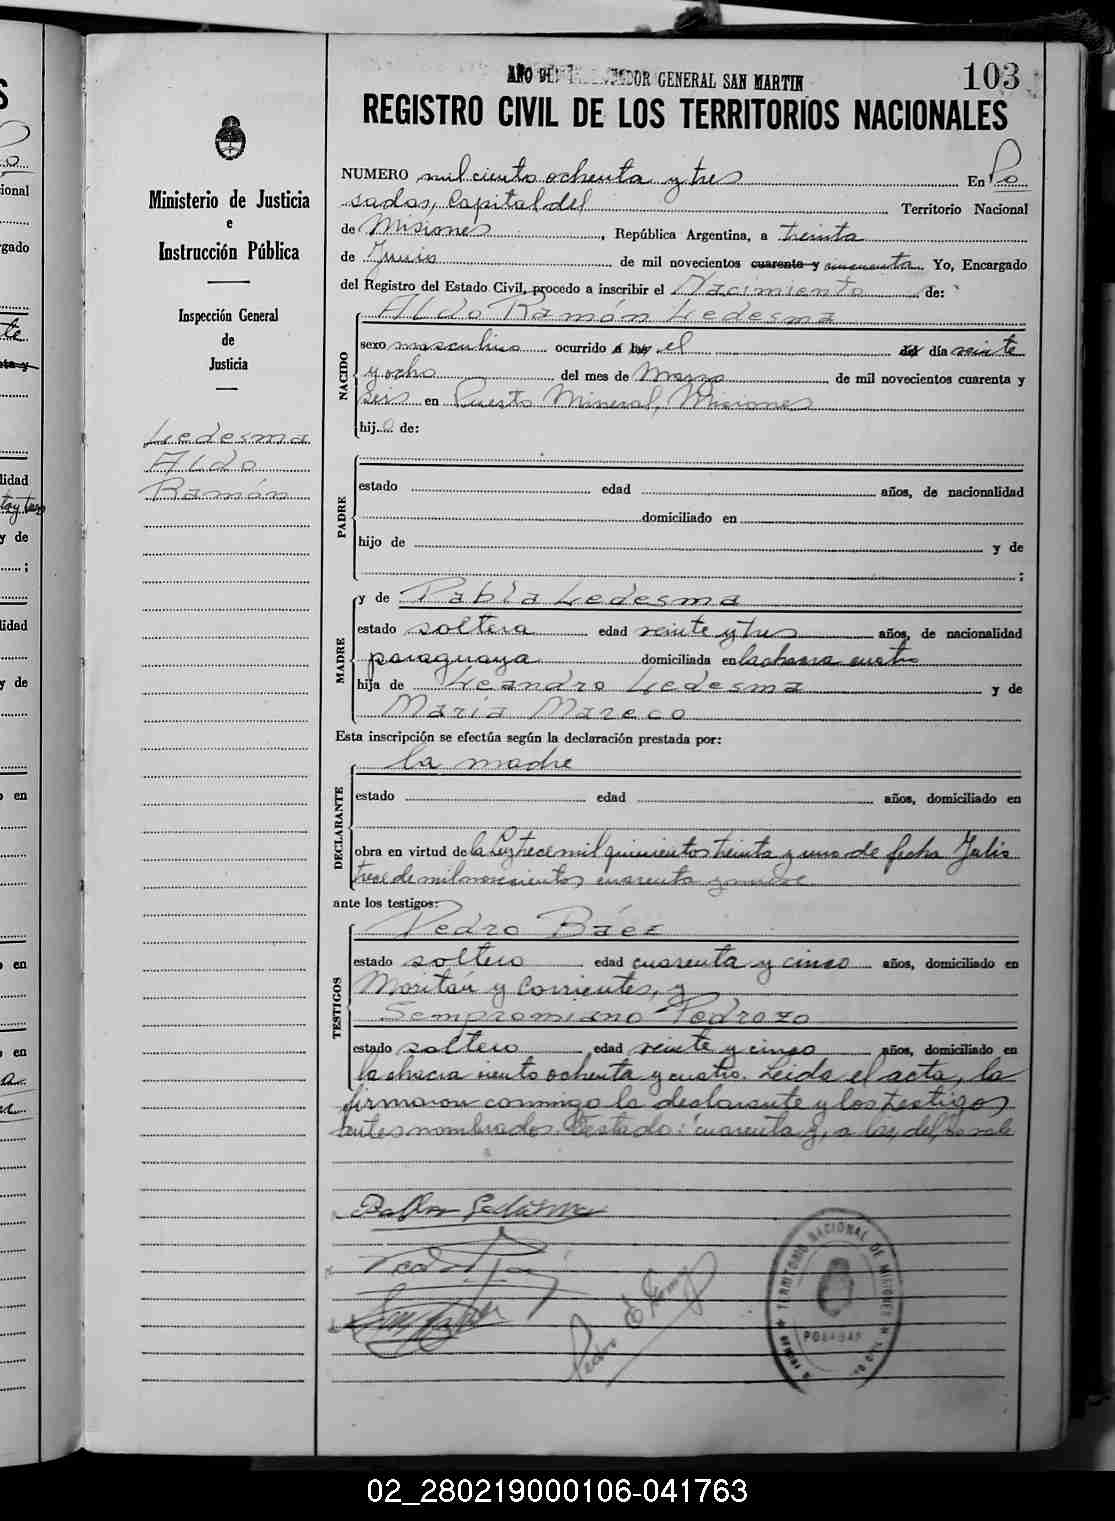 103
AÑO DEL LIBERTADOR GENERAL SAN MARTIN
REGISTRO CIVIL DE LOS TERRITORIOS NACIONALES
Ministerio de Justicia
e
Instrucción Pública
Inspección General
de
Justicia
Ledesma
Aldo
Ramón
NUMERO mil ciento ochenta y tres En Po
sadas, Capital del Territorio Nacional
de Misiones, República Argentina, a treinta
de Junio de mil novecientos cuarenta y cincuenta. Yo, Encargado
del Registro del Estado Civil, procedo a inscribir el Nacimiento de:
Aldo Ramón Ledesma
NACIDO
sexo masculino ocurrido a las el del día veinte
y ocho del mes de Marzo de mil novecientos cuarenta y
seis en Puerto Mineral, Misiones
hijo de:
PADRE
estado edad años, de nacionalidad
domiciliado en
hijo de y de
;
MADRE
y de Pabla Ledesma
estado soltera edad veinte y tres años, de nacionalidad
paraguaya domiciliada en la chacra cuatro
hija de Leandro Ledesma y de
María Mareco
Esta inscripción se efectúa según la declaración prestada por:
la madre
DECLARANTE
estado edad años, domiciliado en
obra en virtud de la Ley trece mil quinientos treinta y uno de fecha Julio
trece de mil novecientos cuarenta y nueve
ante los testigos:
Pedro Báez
TESTIGOS
estado soltero edad cuarenta y cinco años, domiciliado en
Moritán y Corrientes, y
Sempromiano Pedrozo
estado soltero edad veinte y cinco años, domiciliado en
la chacra ciento ochenta y cuatro. Leida el acta, la
firmaron conmigo la declarante y los testigos
antes nombrados. Testado: cuarenta y, a las, del, no vale
Pabla Ledesma
Pedro
TERRITORIO NACIONAL DE MISIONES
POSADAS
02_280219000106-041763